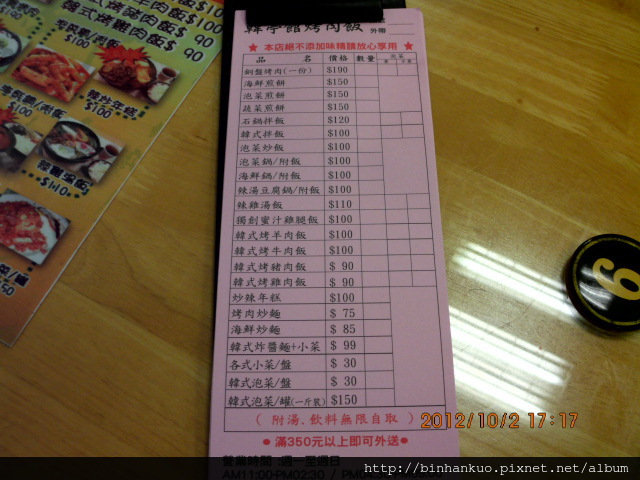 韓式烤豬肉飯$ 90
韓式烤雞肉飯$ 90
$100
韓式炸年糕
$100
$100
$110
韓亭館烤肉飯
外帶
★ 本店絕不添加味精請放心享用 ★
品 名 價格 數量 泡菜
銅盤烤肉(一份) $190
海鮮煎餅 $150
泡菜煎餅 $150
蔬菜煎餅 $150
石鍋拌飯 $120
韓式拌飯 $100
泡菜炒飯 $100
泡菜鍋/附飯 $100
海鮮鍋/附飯 $100
辣湯豆腐鍋/附飯 $100
辣雞湯飯 $110
獨創蜜汁雞腿飯 $100
韓式烤羊肉飯 $100
韓式烤牛肉飯 $100
韓式烤豬肉飯 $ 90
韓式烤雞肉飯 $ 90
炒辣年糕 $100
烤肉炒麵 $ 75
海鮮炒麵 $ 85
韓式炸醬麵+小菜 $ 99
各式小菜/盤 $ 30
韓式泡菜/盤 $ 30
韓式泡菜/罐(一斤裝) $150
( 附湯、飲料無限自取 )
●滿350元以上即可外送●
營業時間:週一至週日
AM11:00-PM02:30 / PM04:
9
2012/10/2 17:17
http://binhankuo.pixnet.net/album